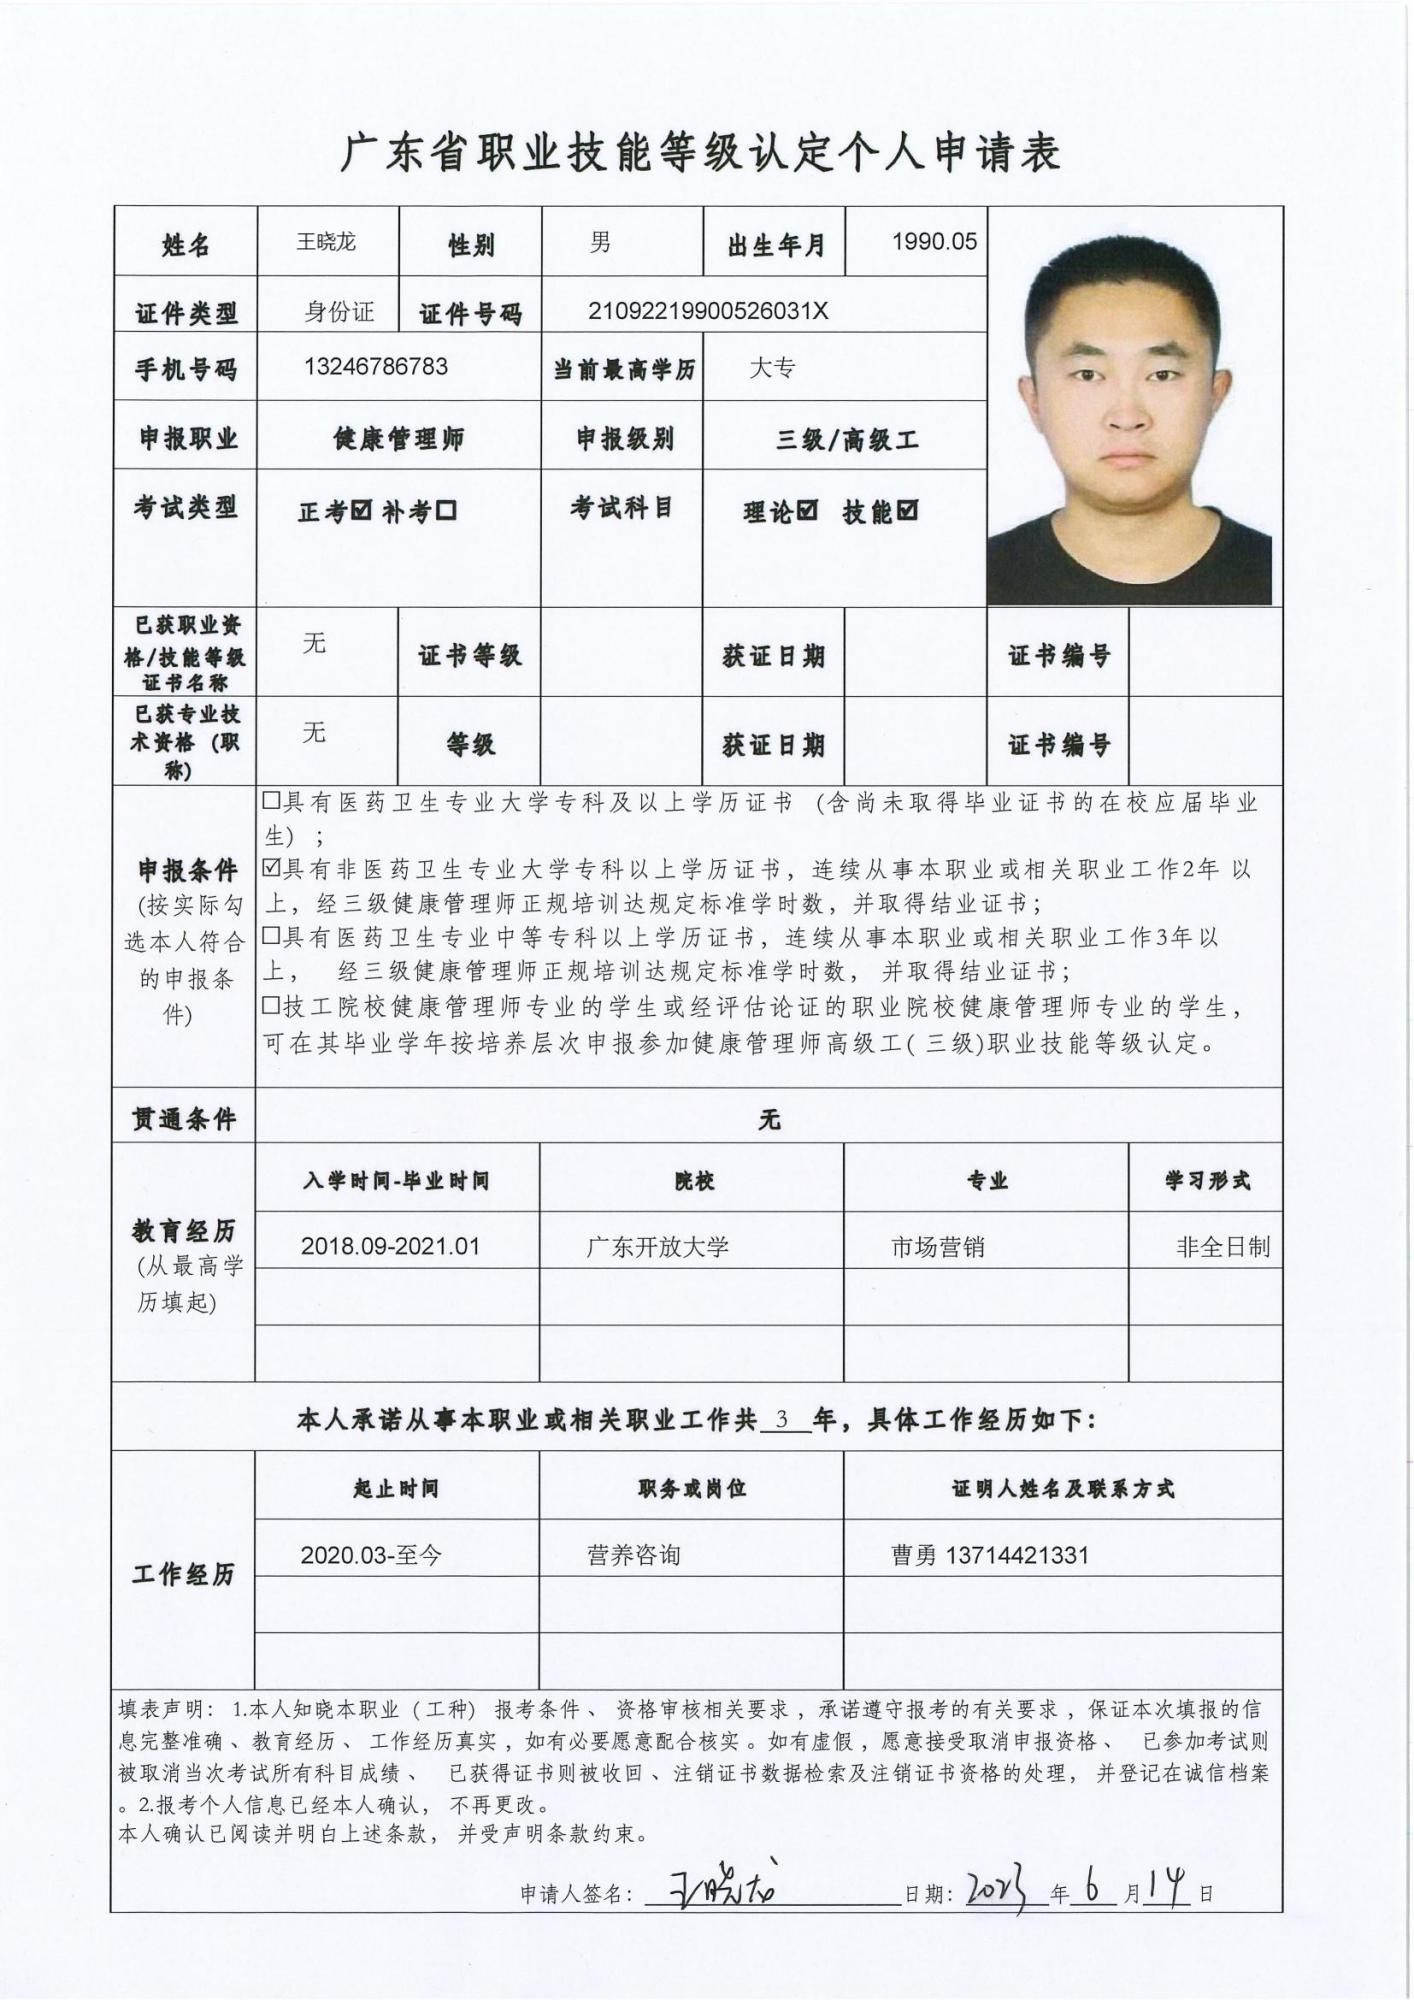 广东省职业技能等级认定个人申请表
姓名 王晓龙 性别 男 出生年月 1990.05
证件类型 身份证 证件号码 21092219900526031X
手机号码 13246786783 当前最高学历 大专
申报职业 健康管理师 申报级别 三级/高级工
考试类型 正考☑ 补考☐ 考试科目 理论☑ 技能☑
已获职业资
格/技能等级
证书名称 无 证书等级 获证日期 证书编号
已获专业技
术资格 (职
称) 无 等级 获证日期 证书编号
申报条件
(按实际勾
选本人符合
的申报条
件)
☐具有医药卫生专业大学专科及以上学历证书 (含尚未取得毕业证书的在校应届毕业
生) ;
☑具有非医药卫生专业大学专科以上学历证书, 连续从事本职业或相关职业工作2年 以
上, 经三级健康管理师正规培训达规定标准学时数, 并取得结业证书;
☐具有医药卫生专业中等专科以上学历证书, 连续从事本职业或相关职业工作3年以
上, 经三级健康管理师正规培训达规定标准学时数, 并取得结业证书;
☐技工院校健康管理师专业的学生或经评估论证的职业院校健康管理师专业的学生,
可在其毕业学年按培养层次申报参加健康管理师高级工( 三级)职业技能等级认定。
贯通条件 无
教育经历
(从最高学
历填起)
入学时间-毕业时间 院校 专业 学习形式
2018.09-2021.01 广东开放大学 市场营销 非全日制
本人承诺从事本职业或相关职业工作共 3 年, 具体工作经历如下:
工作经历
起止时间 职务或岗位 证明人姓名及联系方式
2020.03-至今 营养咨询 曹勇 13714421331
填表声明: 1.本人知晓本职业 (工种) 报考条件、 资格审核相关要求 , 承诺遵守报考的有关要求 , 保证本次填报的信
息完整准确 、教育经历、 工作经历真实 , 如有必要愿意配合核实 。如有虚假 , 愿意接受取消申报资格、 已参加考试则
被取消当次考试所有科目成绩 、 已获得证书则被收回 、注销证书数据检索及注销证书资格的处理, 并登记在诚信档案
。2.报考个人信息已经本人确认, 不再更改。
本人确认已阅读并明白上述条款, 并受声明条款约束。
申请人签名: 王晓龙 日期: 2023 年 6 月 14 日